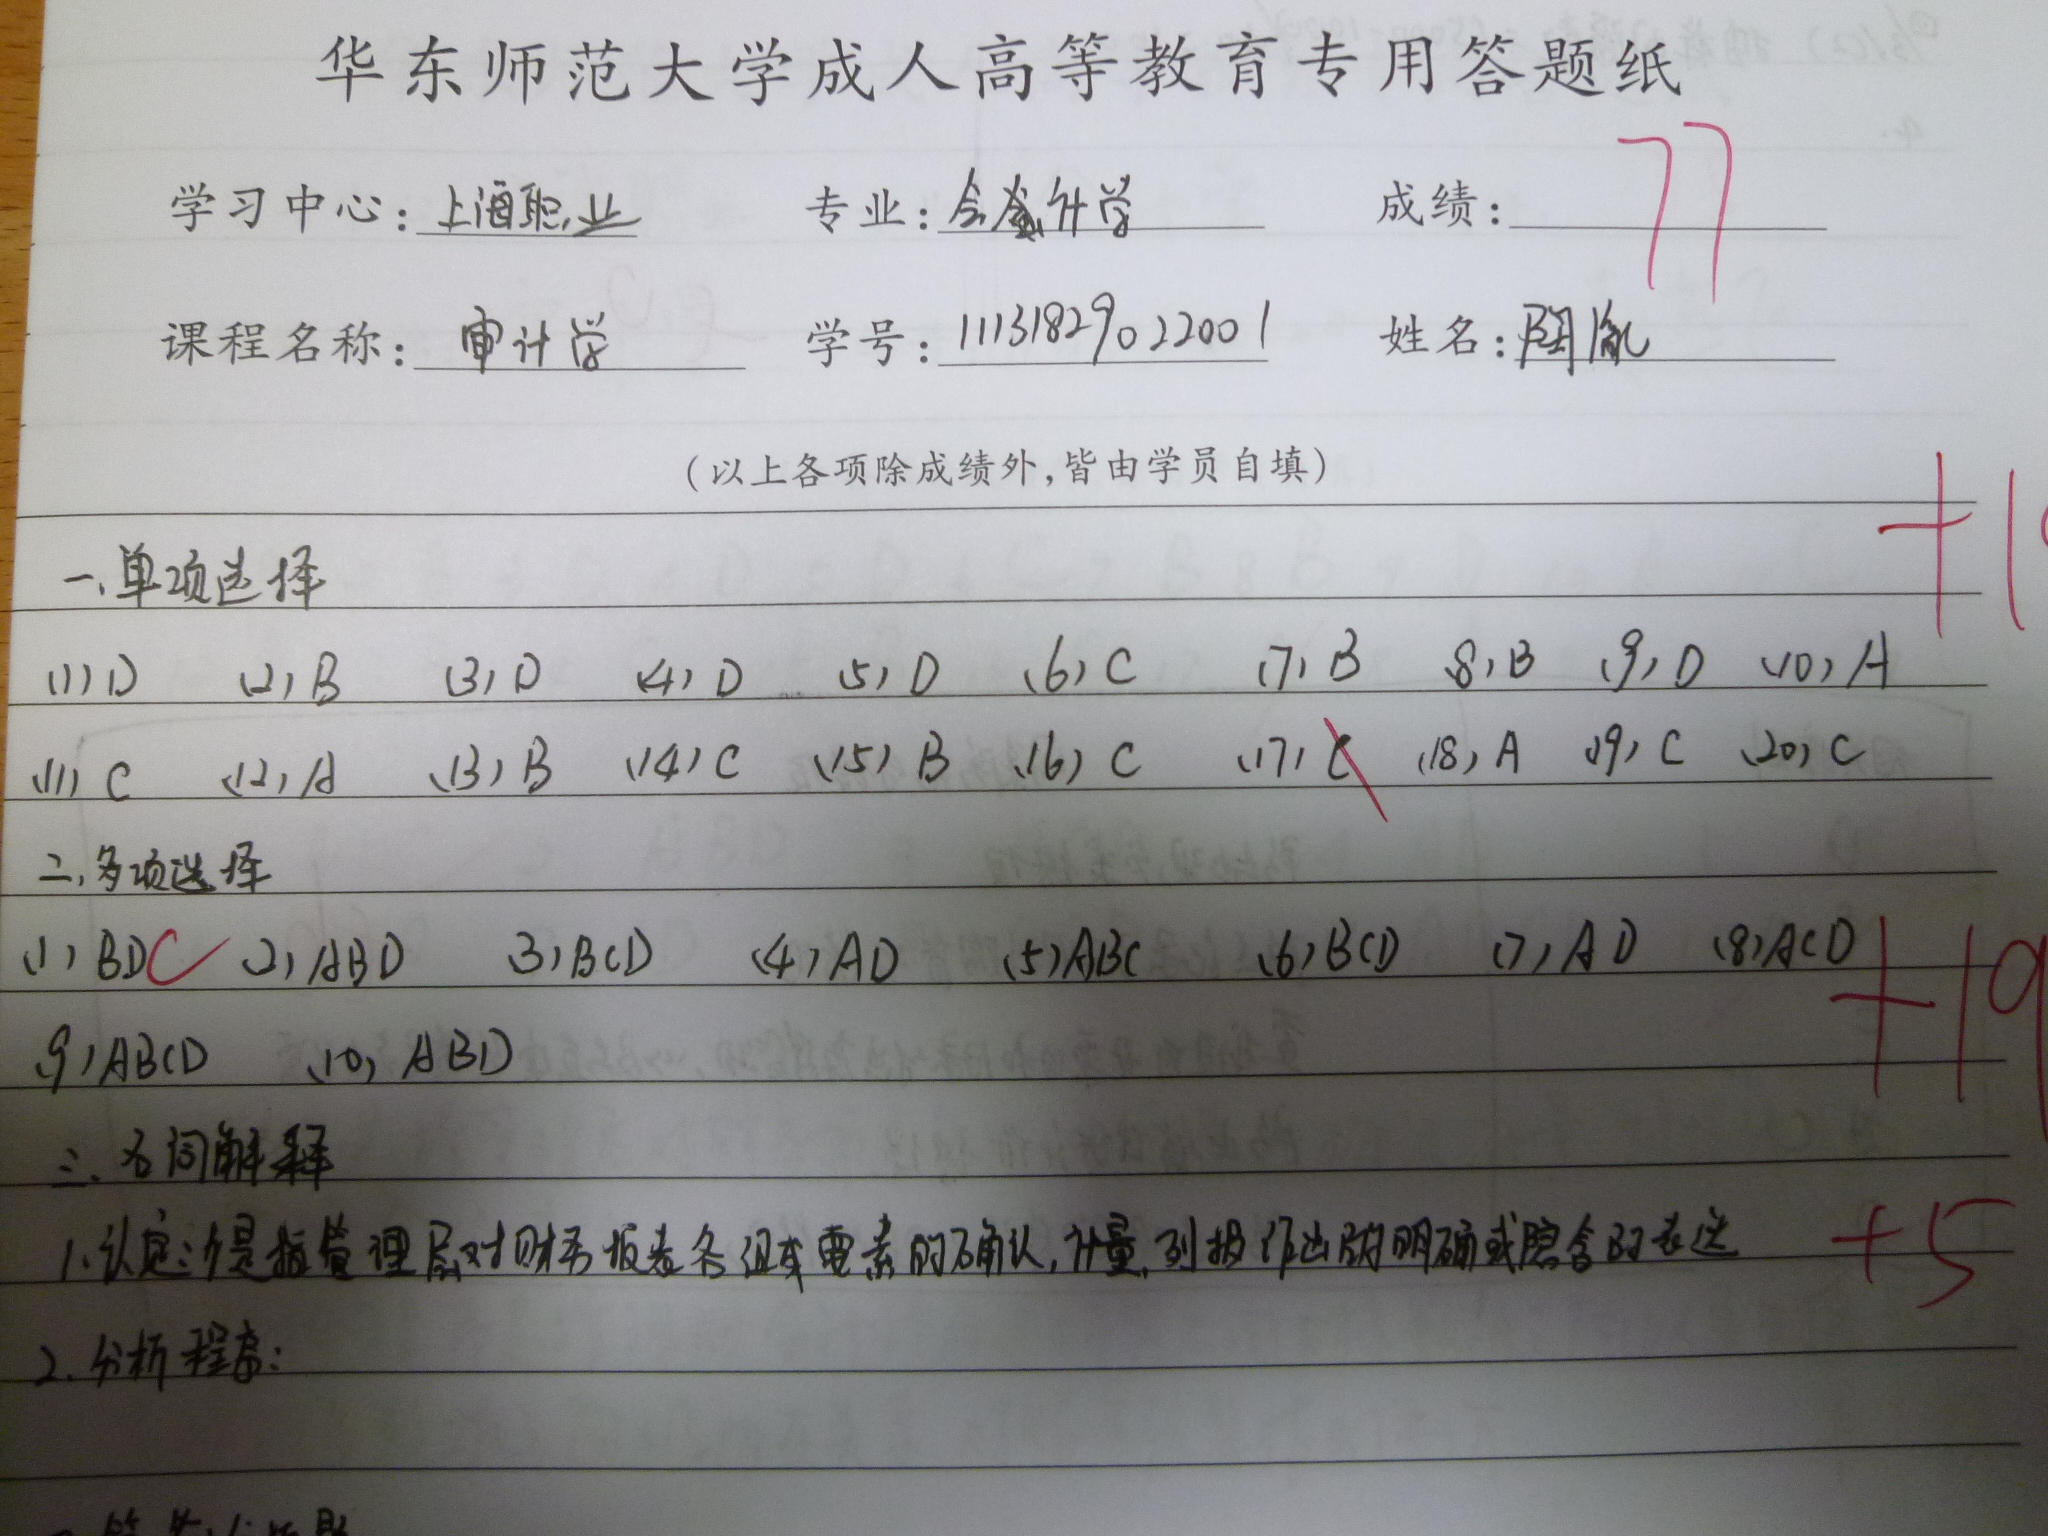 华东师范大学成人高等教育专用答题纸
学习中心: 上海职业 专业: 会计学 成绩: 77
课程名称: 审计学 学号: 11131829022001 姓名: 陶胤
(以上各项除成绩外,皆由学员自填)
一、单项选择
(1) D (2) B (3) D (4) D (5) D (6) C (7) B (8) B (9) D (10) A
(11) C (12) A (13) B (14) C (15) B (16) C (17) C (18) A (19) C (20) C
二、多项选择
(1) BDC (2) ABD (3) BCD (4) AD (5) ABC (6) BCD (7) AD (8) ACD +19
(9) ABCD (10) ABD
三、名词解释
1. 认定:是指管理层对财务报表各组成要素的确认,计量,列报作出的明确或隐含的表达 +5
2. 分析程序: